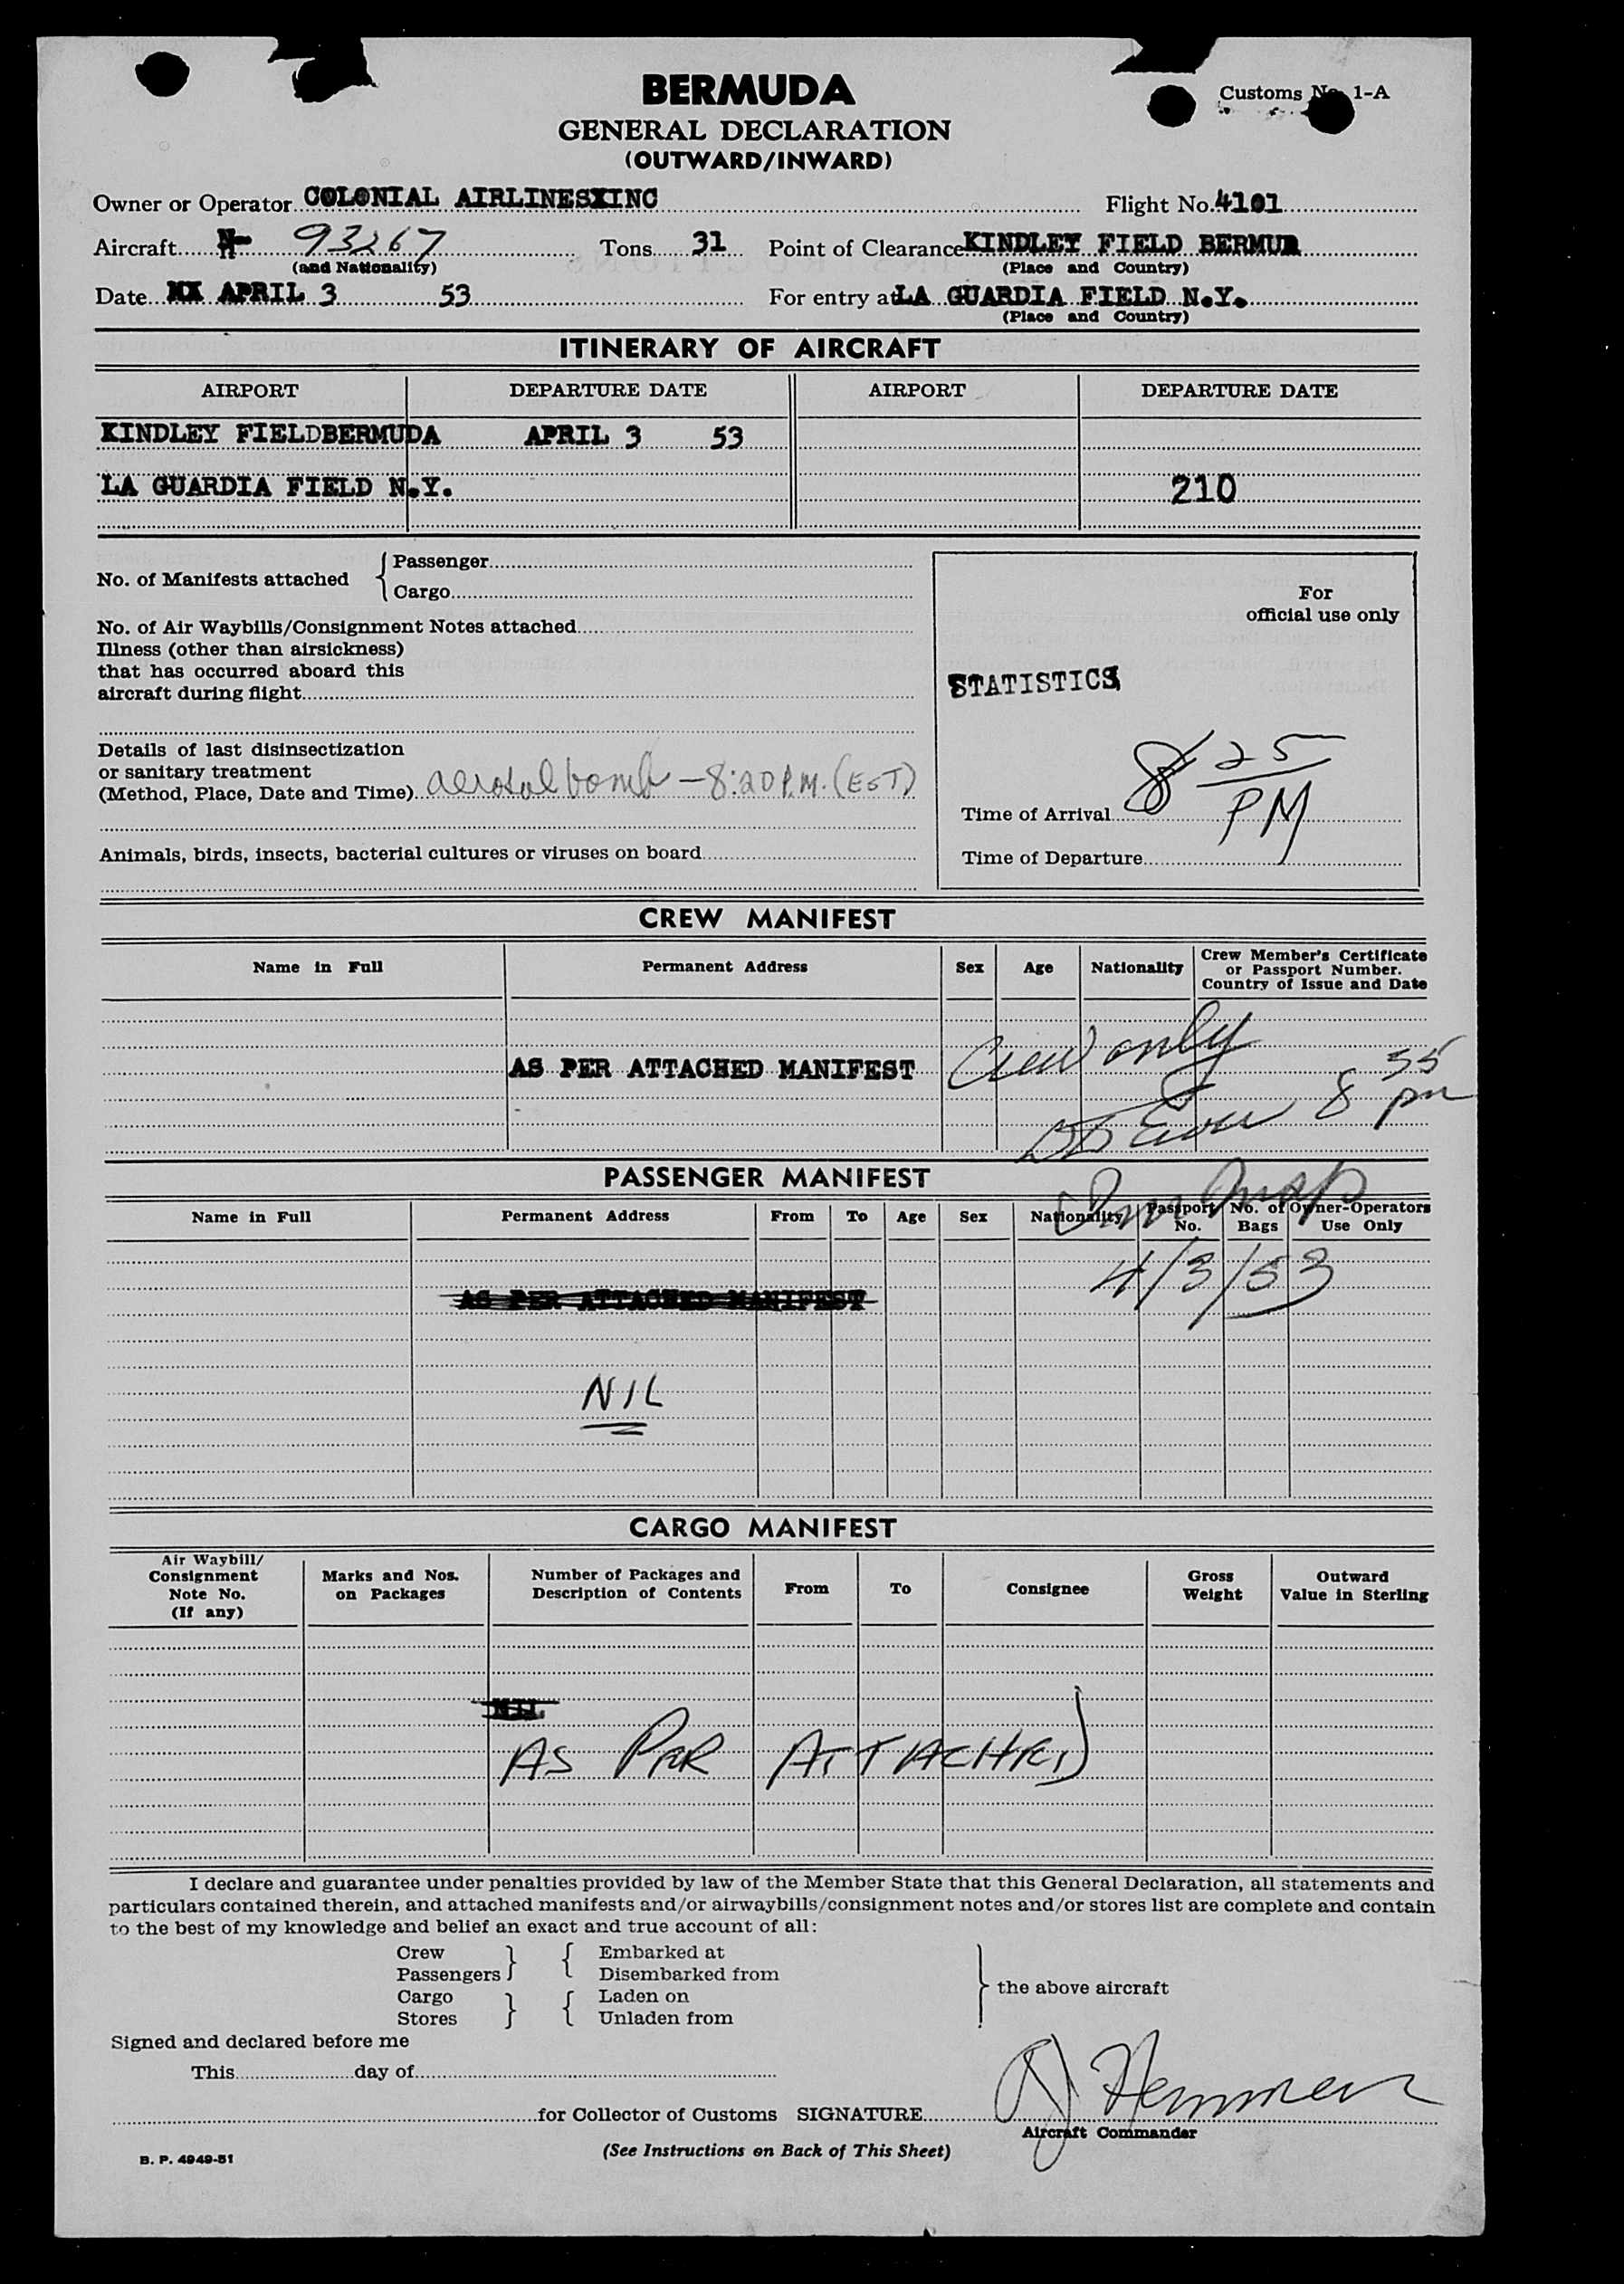 BERMUDA
Customs No. 1-A
GENERAL DECLARATION
(OUTWARD/INWARD)
Owner or Operator COLONIAL AIRLINESXINC Flight No. 4101
Aircraft N- 93267 Tons 31 Point of Clearance KINDLEY FIELD BERMUR
(and Nationality) (Place and Country)
Date XX APRIL 3 53 For entry at LA GUARDIA FIELD N.Y.
(Place and Country)
ITINERARY OF AIRCRAFT
AIRPORT DEPARTURE DATE AIRPORT DEPARTURE DATE
KINDLEY FIELDBERMUDA APRIL 3 53
LA GUARDIA FIELD N.Y. 210
No. of Manifests attached { Passenger
Cargo
For
official use only
No. of Air Waybills/Consignment Notes attached
Illness (other than airsickness)
that has occurred aboard this
aircraft during flight
STATISTICS
Details of last disinsectization
or sanitary treatment
(Method, Place, Date and Time) aerosol bomb - 8:20 P.M. (EST)
Time of Arrival 8 25 PM
Animals, birds, insects, bacterial cultures or viruses on board
Time of Departure
CREW MANIFEST
Name in Full Permanent Address Sex Age Nationality Crew Member's Certificate
or Passport Number.
Country of Issue and Date
Crew only
AS PER ATTACHED MANIFEST
8 55 pm
PASSENGER MANIFEST
Name in Full Permanent Address From To Age Sex Nationality Passport No. No. of Bags Owner-Operators Use Only
4/3/53
AS PER ATTACHED MANIFEST
NIL
CARGO MANIFEST
Air Waybill/
Consignment
Note No.
(If any)
Marks and Nos.
on Packages
Number of Packages and
Description of Contents
From To Consignee
Gross
Weight
Outward
Value in Sterling
NIL
AS PER ATTACHED
I declare and guarantee under penalties provided by law of the Member State that this General Declaration, all statements and
particulars contained therein, and attached manifests and/or airwaybills/consignment notes and/or stores list are complete and contain
to the best of my knowledge and belief an exact and true account of all:
Crew } { Embarked at
Passengers Disembarked from
} the above aircraft
Cargo } { Laden on
Stores Unladen from
Signed and declared before me
This day of
for Collector of Customs SIGNATURE
Aircraft Commander
(See Instructions on Back of This Sheet)
B. P. 4949-51